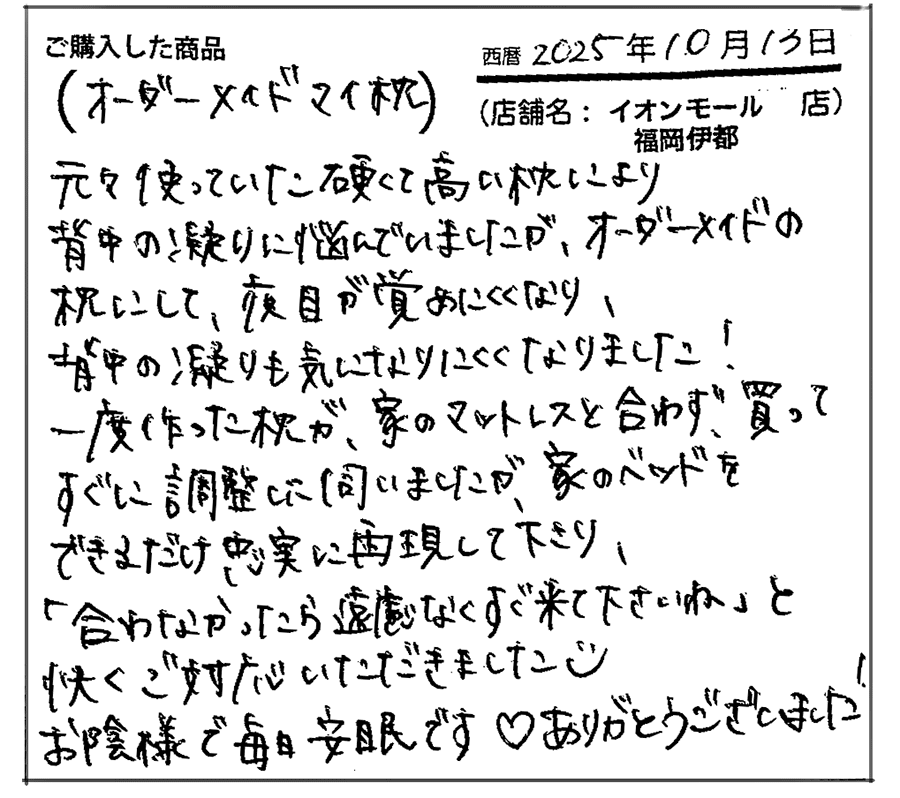 ご購入した商品
西暦 2025年10月13日
(オーダーメイドマイ枕)
(店舗名：イオンモール 店)
福岡伊都
元々使っていた硬くて高い枕により
背中の凝りに悩んでいましたが、オーダーメイドの
枕にして、夜目が覚めにくくなり、
背中の凝りも気になりにくくなりました!
一度作った枕が、家のマットレスと合わず、買って
すぐに調整しに伺いましたが、家のベッドを
できるだけ忠実に再現して下さり、
「合わなかったら遠慮なくすぐ来て下さいね」と
快くご対応いただきました
お陰様で毎日安眠です♡ありがとうございました!